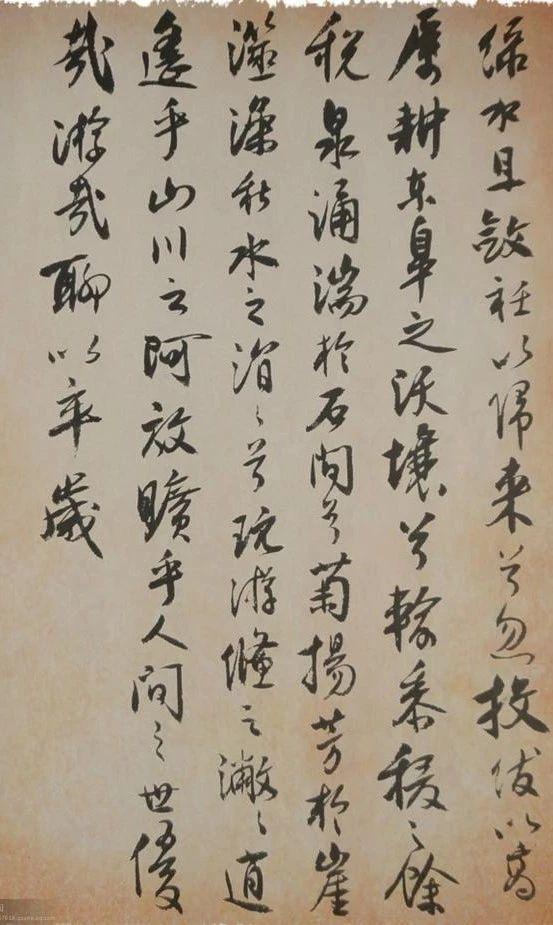 绿水且斂衽以歸来兮忽投紱以高
厲耕东皋之沃壤兮輸黍稷之餘
税泉涌湍於石間兮菊揚芳於崖
澨澡秋水之涓〻兮玩游鯈之潎〻逍
遥乎山川之阿放曠乎人間之世優
哉游哉聊以卒歲